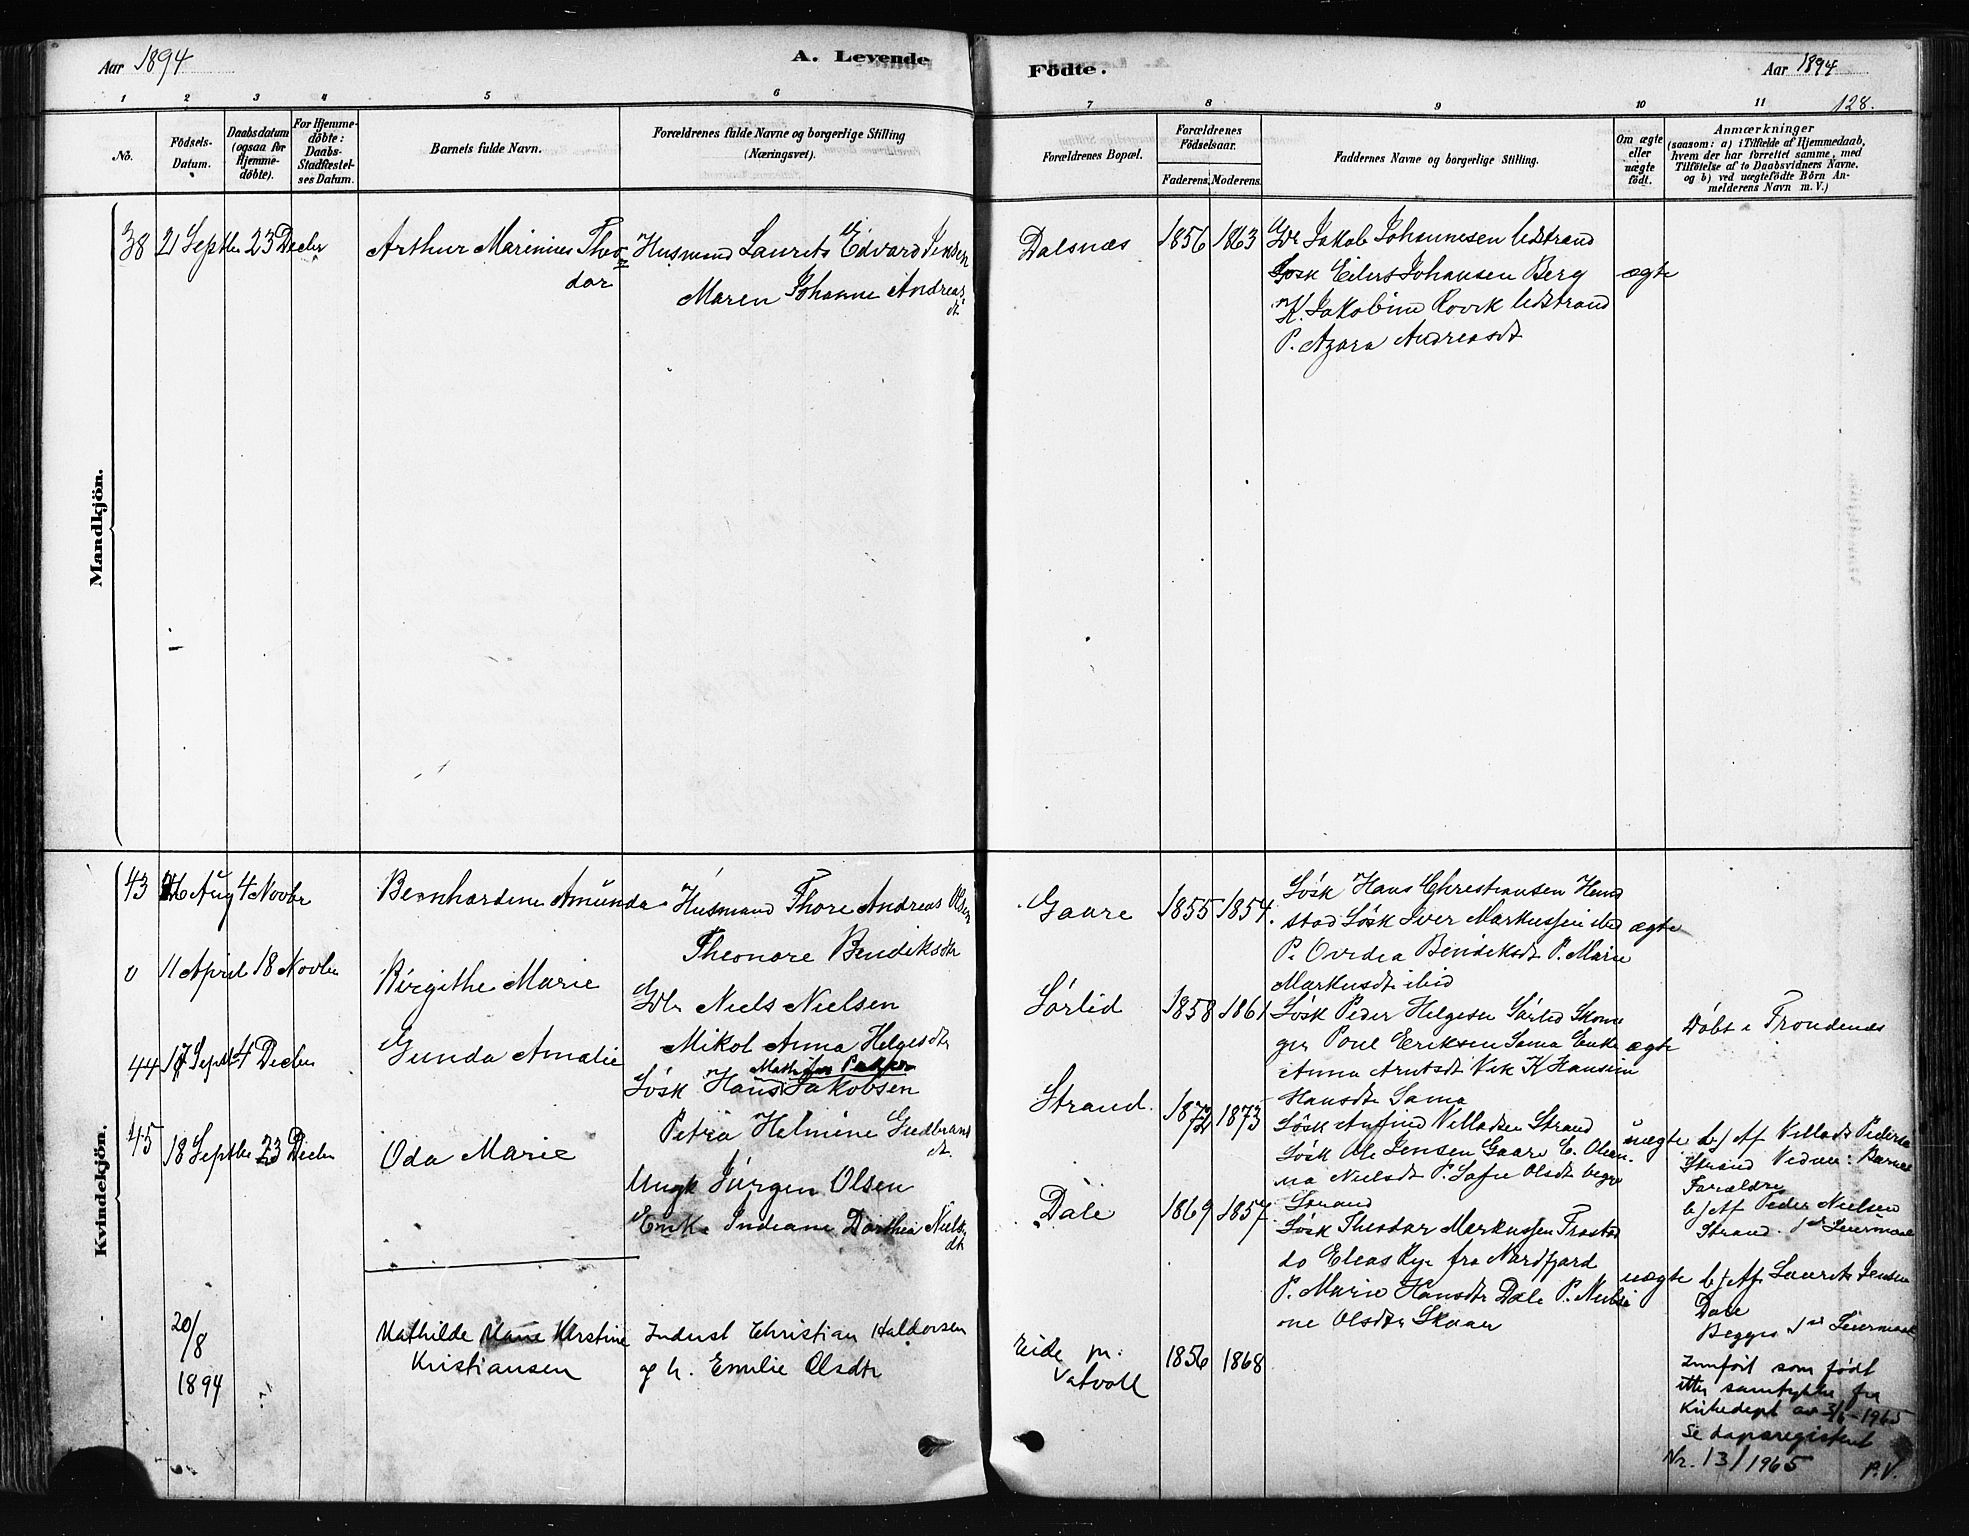 Aar 1894
A. Levende
Födte.
Aar 1894
128.
1 2 3 4 5 6 7 8 9 10 11
No.
Födsels-
Datum.
Daabsdatum
(ogsaa for
Hjemme-
döbte).
For Hjemme-
döbte:
Daabs-
Stadfæstel-
ses Datum.
Barnets fulde Navn.
Forældrenes fulde Navne og borgerlige Stilling
(Næringsvei).
Forældrenes Bopæl.
Forældrenes
Födselsaar.
Faderens. Moderens.
Faddernes Navne og borgerlige Stilling.
Om ægte
eller
uægte
födt.
Anmærkninger
(saasom: a) i Tilfælde af Hjemmedaab,
hvem der har forrettet samme, med
Tilföielse af to Daabsvidners Navne,
og b) ved uægtefödte Börn An-
melderens Navn m. V.)
Mandkjön.
38 21 Septbr 23 Decbr
Arthur Marinius Theo
dor
Husmand Laurits Edvard Jensen
Maren Johanne Andreas
dt
Dalsnæs
1856 1863
Gbr Jakob Johannesen Udstrand
Søsk Eilert Johansen Berg
K. Jakobine Rovik Udstrand
P. Azora Andreasdt
ægte
Kvindekjön.
43 26 Aug 4 Novbr
Bernhardine Amunda
Husmand Thore Andreas Olsen
Theonore Bendiksdtr
Gaare
1855 1854.
Søsk Hans Christiansen Hem
stad Søsk Iver Markussen ibid
P. Ovidia Bendiksdt P. Marie
Markusdt ibid
ægte
0 11 April 18 Novbr
Birgithe Marie
Gbr Niels Nielsen
Mikol Anna Helgesdtr
Sørlid
1858 1861
Søsk Peder Helgesen Sørlid Skoma
ger Poul Eriksen Sama Enke
Anna Arntsdt Vik K Hansine
Hansdt Sama
ægte
Døbt i Trondenæs
44 17 Septbr 4 Decbr
Gunda Amalie
Søsk Hans Jakobsen
Petra Helmine Gudbrands
dt.
Strand.
1872 1873
Søsk Anfind Villadsen Strand
Søsk Ole Jensen Gaare E. Olean
na Nielsdt P. Sofie Olsdt begge
Strand
uægte
b/ Af Villads Pedersen
Strand Vidne: Barnets
Forældre
b/ Af Peder Nielsen
Strand. 1ste Leiermaal
45 18 Septbr 23 Decbr
Oda Marie
Ungk Jürgen Olsen
Enke Indiane Dorthea Niels
dt
Dale
1869 1857
Søsk Theodor Markussen Trastad
do Elias Rye fra Nordfjord
P. Marie Hansdtr Dale P. Nilsi
ne Olsdtr Skaar
uægte
b/ Af Laurits Jensen
Dale
Begges 1ste Leiermaal
20/8
1894
Mathilde Marie Kirstine
Kristiansen
Indust Christian Haldorsen
og h. Emilie Olsdtr
Eide pr.
Vatvoll
1856 1868
Innført som født
etter samtykke fra
Kirkedept av 3/6-1965
Se dapsregisteret
Nr. 13/1965 P.V.